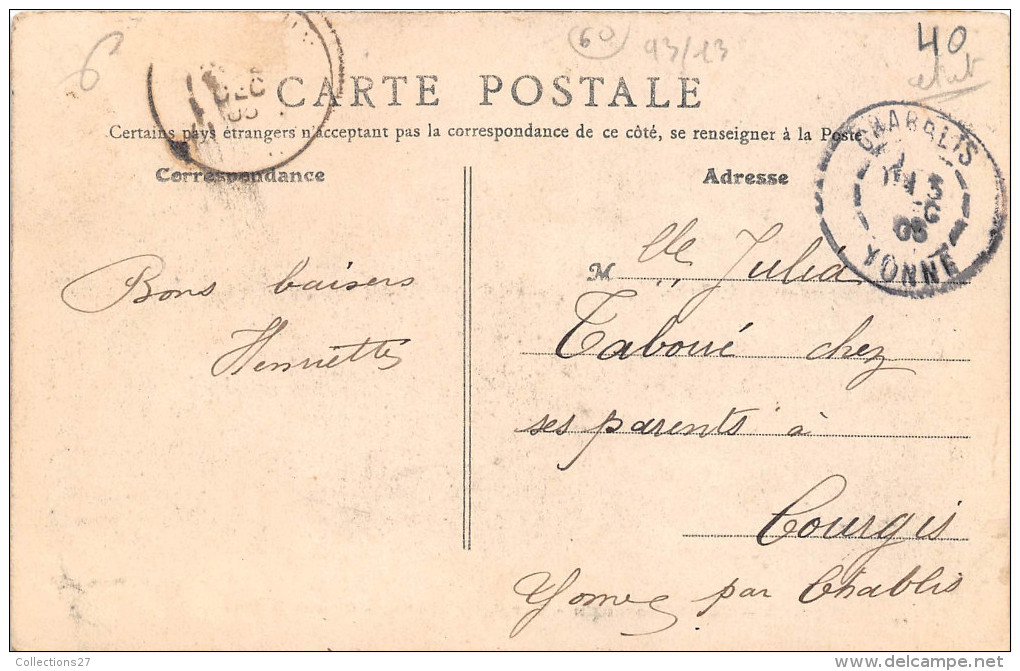 6
60
93/13
40
CARTE POSTALE
Certains pays étrangers n'acceptent pas la correspondance de ce côté, se renseigner à la Poste
Correspondance
Bons baisers
Henriette
Adresse
Mlle Julia
Taboué chez
ses parents à
Courgis
Yonne par Chablis
CHABLIS
3
DEC
05
YONNE
DEC
05
Collections27
www.delcampe.net